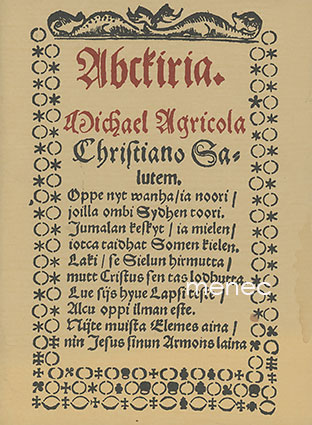 Abckiria.
Michael Agricola
Christiano Sa-
lutem.
Oppe nyt wanha/ia noori/
joilla ombi Sydhen toori.
Jumalan keskyt/ia mielen/
iotca taidhat Somen kielen.
Laki/se Sielun hirmutta/
mutt Cristus sen tas lodhutta.
Lue sijs hyue Lapsi teste/
Alcu oppi ilman este.
Nijte muista Elemes aina/
nin Jesus sinun Armons laina
menec